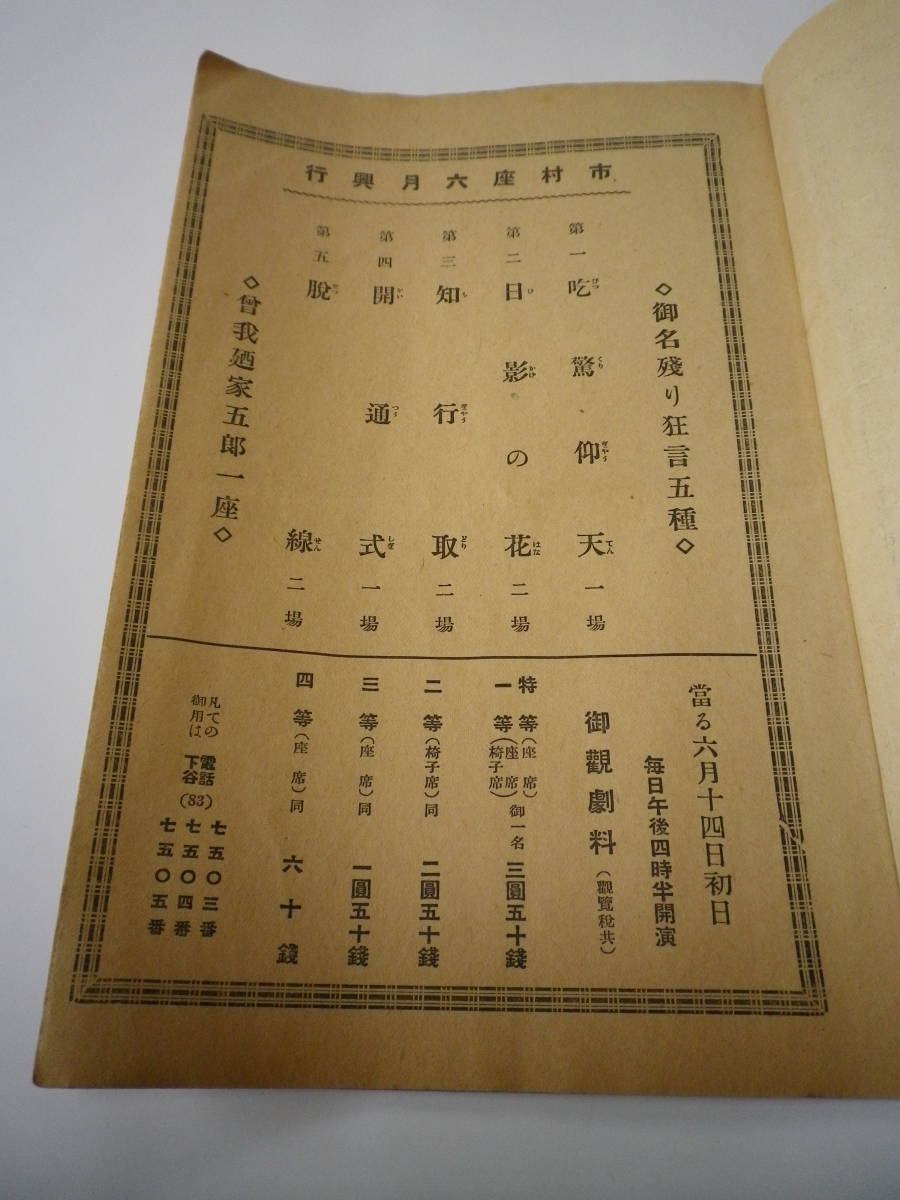 市村座六月興行
◇御名殘り狂言五種◇
第一 吃驚仰天 一場
第二 日影の花 二場
第三 知行取 二場
第四 開通式 一場
第五 脫線 二場
◇曾我廼家五郎一座◇
當る六月十四日初日
毎日午後四時半開演
御觀劇料（觀覽稅共）
特等（座席）
一等（座席）（椅子席）御一名 三圓五十錢
二等（椅子席）同 二圓五十錢
三等（座席）同 一圓五十錢
四等（座席）同 六十錢
凡ての御用は 電話下谷(83)
七五〇三番
七五〇四番
七五〇五番